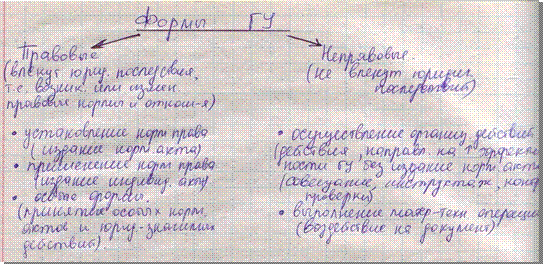 Формы ГУ
Правовые
(влекут юрид. последствия,
т.е. возник. или измен.
правовые нормы и отнош-я)
• установление норм права
(издание норм. акта)
• применение норм права
(издание индивид. акта)
• особые формы.
(принятие особых норм.
актов и юрид-значимых
действий).
Неправовые.
(не влекут юридич.
последствий)
• осуществление организ. действий
(действия, направл. на ↑ эффектив
ности ГУ без издание норм. акта
(совещание, инструктаж,
проверки)
• выполнение матер-техн операций
(воздействие на документ)